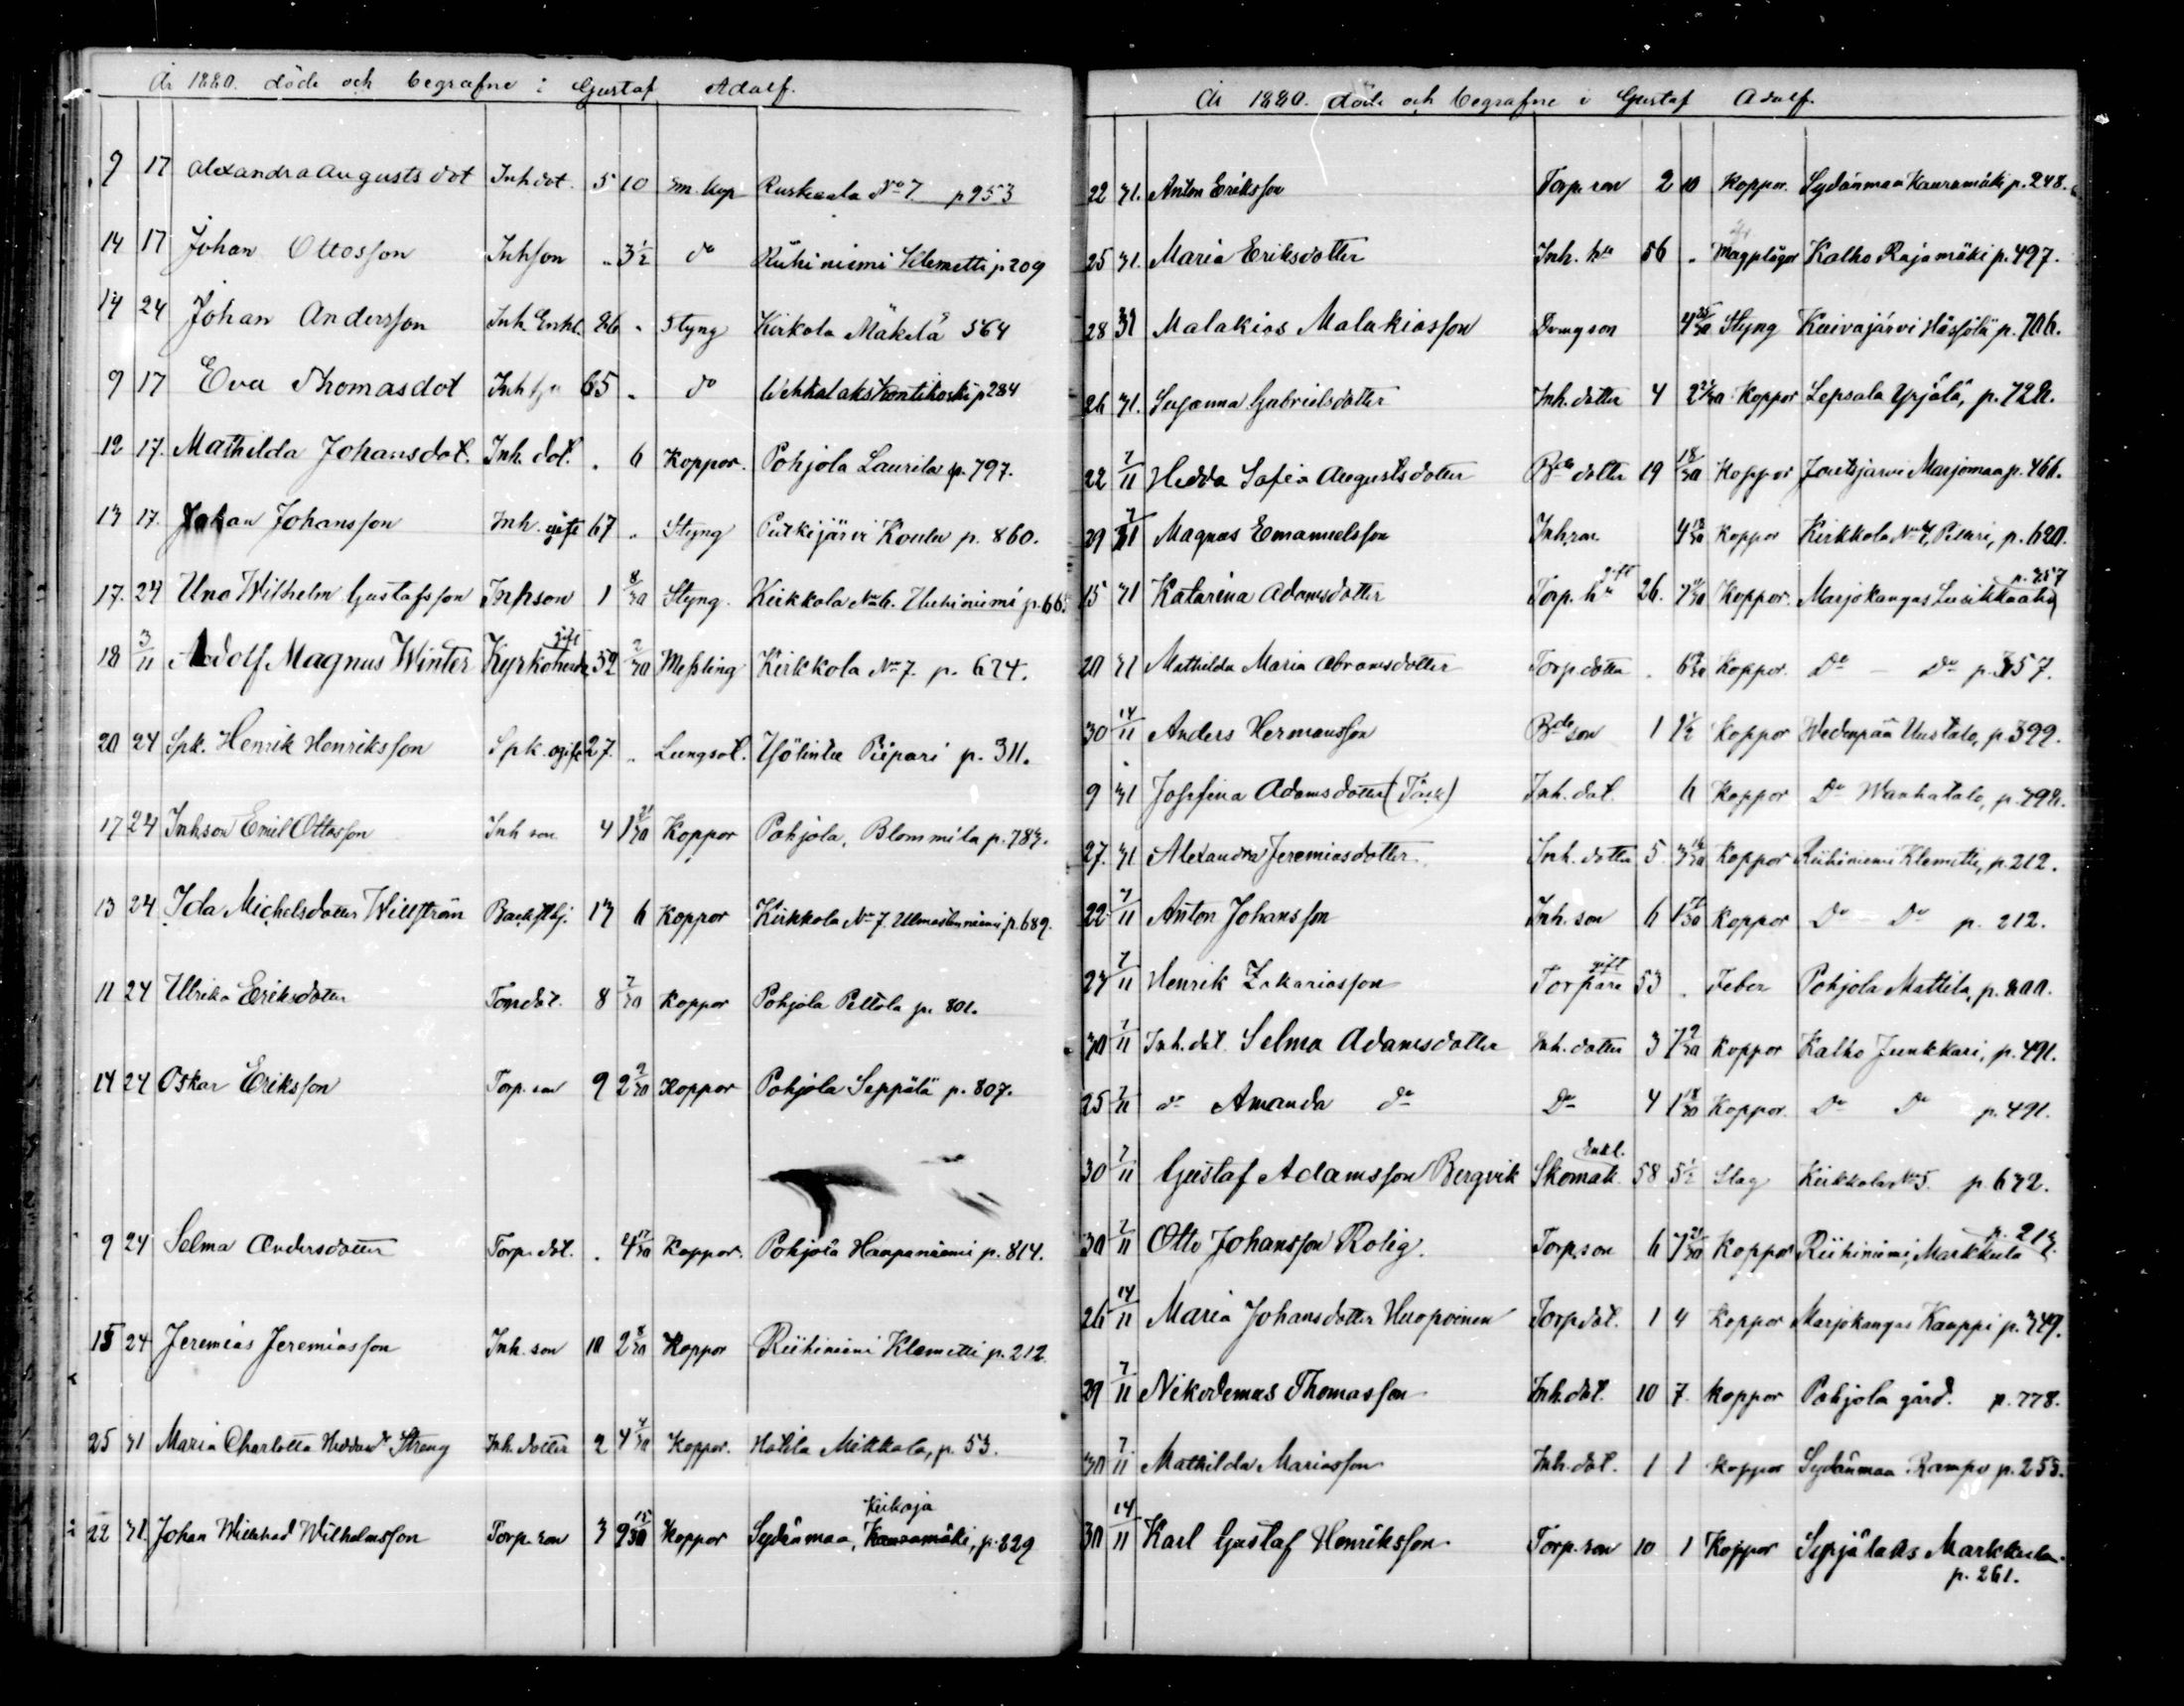 År 1880. döde och begrafne i Gustaf Adolf.
9 17 Alexandra Augusts dot Inh dot. 5 10 sm. kop Ruskeala No 7. p 953
14 17 Johan Ottosson Inhson „ 3 1/2 do Riihiniemi Klemetti p 209
14 24 Johan Andersson Inh. Enkl. 86 „ Styng Kirkola Mäkelä 564
9 17 Eva Thomasdot Inh 65 „ do Wehkalaks Kontikoski p 284
12 17. Mathilda Johansdot. Inh. dot. „ 6 Koppor. Pohjola Laurila p. 797.
13 17. Johan Johansson Inh. gift 67 „ Styng Putkijärvi p. 860.
17. 24 Uno Wilhelm Gustafsson Inhson 1 8/30 Styng. Kirkkola No 6. p. 665
18 3/11 Adolf Magnus Winter Kyrkoherde gift 52 2/30 Messling Kirkkola No 7. p. 624.
20 24 Spk. Henrik Henriksson Spk. ogift 27. „ Lungsot. Piipari p. 311.
17 24 Inhson Emil Ottosson Inh son 4 Koppor Pohjola, Blommila p. 783.
13 24 Ida Michelsdotter 13 6 Koppor Kirkkola No 7. p. 689.
11 24 Ulrika Eriksdotter Torpdot. 8 7/30 Koppor Pohjola Peltola p. 801.
14 24 Oskar Eriksson Torp. son 9 2 2/30 Koppor Pohjola Seppälä p. 807.
9 24 Selma Andersdotter Torp. dot. „ Koppor. Pohjola Haapaniemi p. 814.
15 24 Jeremias Jeremiasson Inh. son 10 2 8/30 Koppor Riihiniemi Klemetti p. 212.
25 31 Maria Charlotta Streng Inh. dotter 2 4 4/30 Koppor. Mikkola, p. 53.
Keikoja
22 31. Johan Wilhelmsson Torp. son 3 9 15/30 Koppor Sydänmaa, Kauramäki, p. 829
År 1880. döde och begrafne i Gustaf Adolf.
22 31. Anton Eriksson Torp. son 2 10 Koppor. Sydänmaa Kauramäki p. 248.
25 31. Maria Eriksdotter Inh. hu 56 „ Magplågor Kalho Rajamäki p. 497.
28 31 Malakias Malakiasson Dreng son 4 25/30 Styng Kuivajärvi p. 706.
26 31. Susanna Gabrielsdotter Inh. dotter 4 Koppor Lepsala Yrjölä, p. 728.
22 7/11 Hedda Sofia Augustsdotter Bde dotter 19 18/30 Koppor Joutsjärvi Marjomaa p. 466.
29 7/11 Magnus Emanuelsson Inh.son 4 18/30 Koppor Kirkkola No 4, p. 620.
gift p. 357
15 31 Katarina Adamsdotter Torp. hu 26. Koppor. Marjokangas
20 31 Mathilda Maria Abramsdotter Torp dotter „ Koppor. Do — Do p. 357.
30 14/11 Anders Hermansson Bde son 1 1 1/2 Koppor Wedenpää Uustalo, p. 399.
9 31 Josefina Adamsdotter (Törn) Inh. dot. 6 Koppor Do Wanhatalo, p. 398.
27. 31 Alexandra Jeremiasdotter Inh. dotter 5. 3 16/30 Koppor Riihiniemi Klemetti, p. 212.
22 7/11 Anton Johansson Inh. son 6 Koppor Do — Do p. 212.
gift
23 7/11 Henrik Zakariasson Torpare 53 „ Feber Pohjola Mattila, p. 800.
30 7/11 Inh. dot. Selma Adamsdotter Inh. dotter 3 7 2/30 Koppor Kalho Junkkari, p. 491.
25 7/11 do Amanda do Do 4 1 18/30 Koppor. Do Do p. 491.
Enkl.
30 7/11 Gustaf Adamsson Bergvik Skomak. 58 5 1/2 Slag Kirkkola No 5. p. 632.
p. 213.
30 7/11 Otto Johansson Rolig. Torp.son 6 7 21/30 Koppor Riihiniemi, Markkula
26 14/11 Maria Johansdotter Huopoinen Torp dot. 1 4 Koppor Marjokangas Kauppi p. 349.
29 7/11 Nikodemus Thomasson Inh. dot. 10 7. Koppor Pohjola gård. p. 778.
30 7/11 Mathilda Mariasson Inh. dot. 1 1 Koppor Sydänmaa Rampo p. 255.
30 14/11 Karl Gustaf Henriksson Torp. son 10 1 Koppor Syrjälaks Markkula
p. 261.